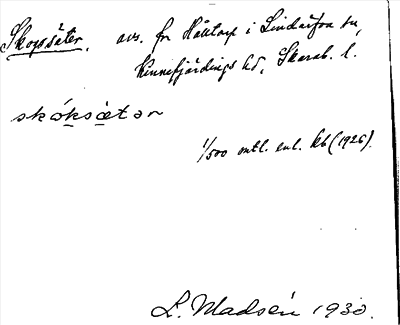 Skogssäter, avs. fr Hålltorp i Lindärfva sn,
Kinnefjärdings hd, Skarab. l.
skóksätər
1/500 mtl. enl. kb (1926).
L. Madsén 1930.